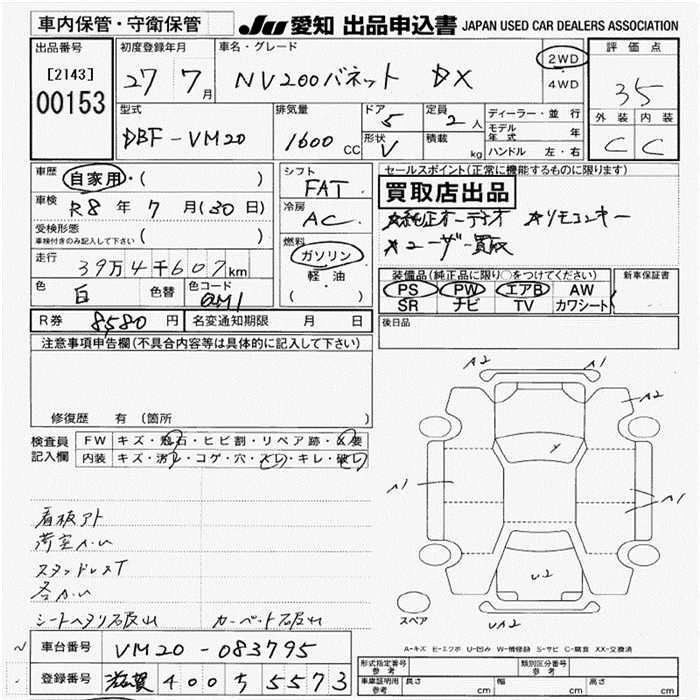 車内保管・守衛保管
JU 愛知 出品申込書 JAPAN USED CAR DEALERS ASSOCIATION
出品番号
[2143]
00153
初度登録年月
27 7月
車名・グレード
NV200バネット DX
2WD
4WD
評価点
35
外装 内装
C C
型式
DBF-VM20
排気量
1600 CC
ドア 5
形状 V
定員 2人
積載 kg
ディーラー・並行
モデル年式 年
ハンドル 左・右
車歴 自家用・( )
車検 R8年7月(30日)
受検形態
車検付きのみ記入して下さい ( )
走行
39万4千607km
色 白 色替
色コード QM1
シフト
FAT
冷房
AC
燃料
ガソリン
軽・油
( )
セールスポイント(正常に機能するものに限ります)
買取店出品
★純正オーデオ ★リモコンキー
★ユーザー買取
装備品(純正品に限り○をつけてください)
PS PW エアB AW
SR ナビ TV カワシート
新車保証書
後日品
R券 8580円 名変通知期限 月 日
注意事項申告欄(不具合内容等は具体的に記入して下さい)
修復歴 有(箇所 )
検査員
記入欄
FW キズ・飛石・ヒビ割・リペア跡・×要
内装 キズ・汚レ・コゲ・穴・スレ・キレ・破レ
看板アト
荷室A.U
スタッドレスT
各A.U
シートヘタリ破れ カーペット破れ
A2 A1
A2
A1 A1
A1
Y
U2
UA2
スペア
A-キズ E-エクボ U-凹み W-補修跡 S-サビ C-腐食 XX-交換済
車台番号 VM20-083795
登録番号 滋賀 400 ち 5573
形式指定番号 参考
類別区分番号 参考
車庫証明用 参考 長さ cm 幅 cm 高さ cm